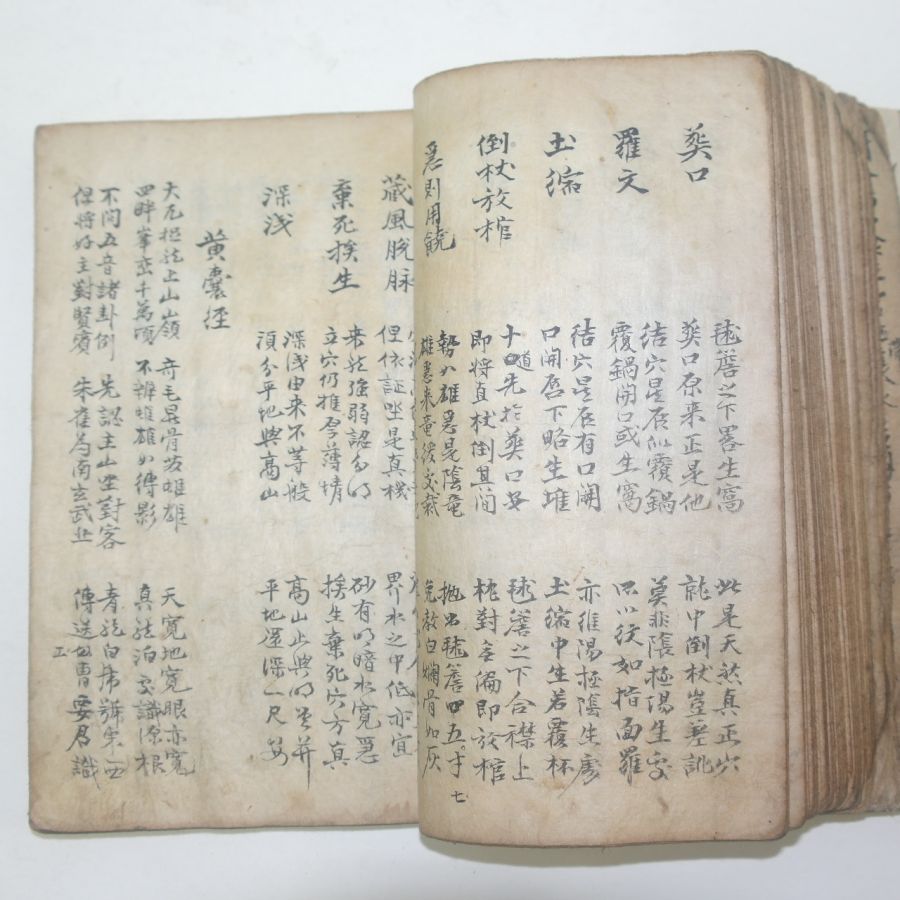 葬口
毬簷之下畧生窩 此是天然真正穴
葬口原来正是他 就中倒杖豈差訛
羅文
結穴星辰似覆鍋 莫非陰極陽生處
覆鍋開口或生窩 只以紋如指面羅
土縮
結穴星辰有口開 亦維陽極陰生處
口開唇下略生堆 土縮中生若覆杯
倒杖放棺
十道先於葬口安 毬簷之下合襟上
即将真杖倒其間 枕對無偏即放棺
急則用饒
勢如雄急是陰竜 抛出毬簷四五寸
雄急来竜緩处裁 免教白爛骨如灰
七
藏風脫脉
但依証坐是真機 界水之中低亦宜
棄死挨生
来龍強弱認分明 砂有明暗水寬急
立穴仍推厚薄情 挨生棄死穴方真
深浅
深浅由来不等般 高山止與明堂并
須分平地與高山 平地還深一尺安
黄囊經
大凡捉龍上山嶺 奇毛異骨若雄雄 天寬地寬眼亦寬
四畔峯峦千萬頃 不辨雌雄如傳影 真龍泊處識源根
不問五音諸卦例 先認主山坐對客 青龍白虎號東西
但将好主對賢賓 朱雀為南玄武北 傳送功曹要君識